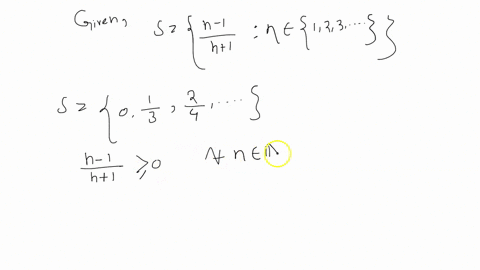 Given, S = { n-1/n+1 : n ∈ {1,2,3,....} }
S = { 0, 1/3, 2/4, .... }
n-1/n+1 ≥ 0 ∀ n ∈ N